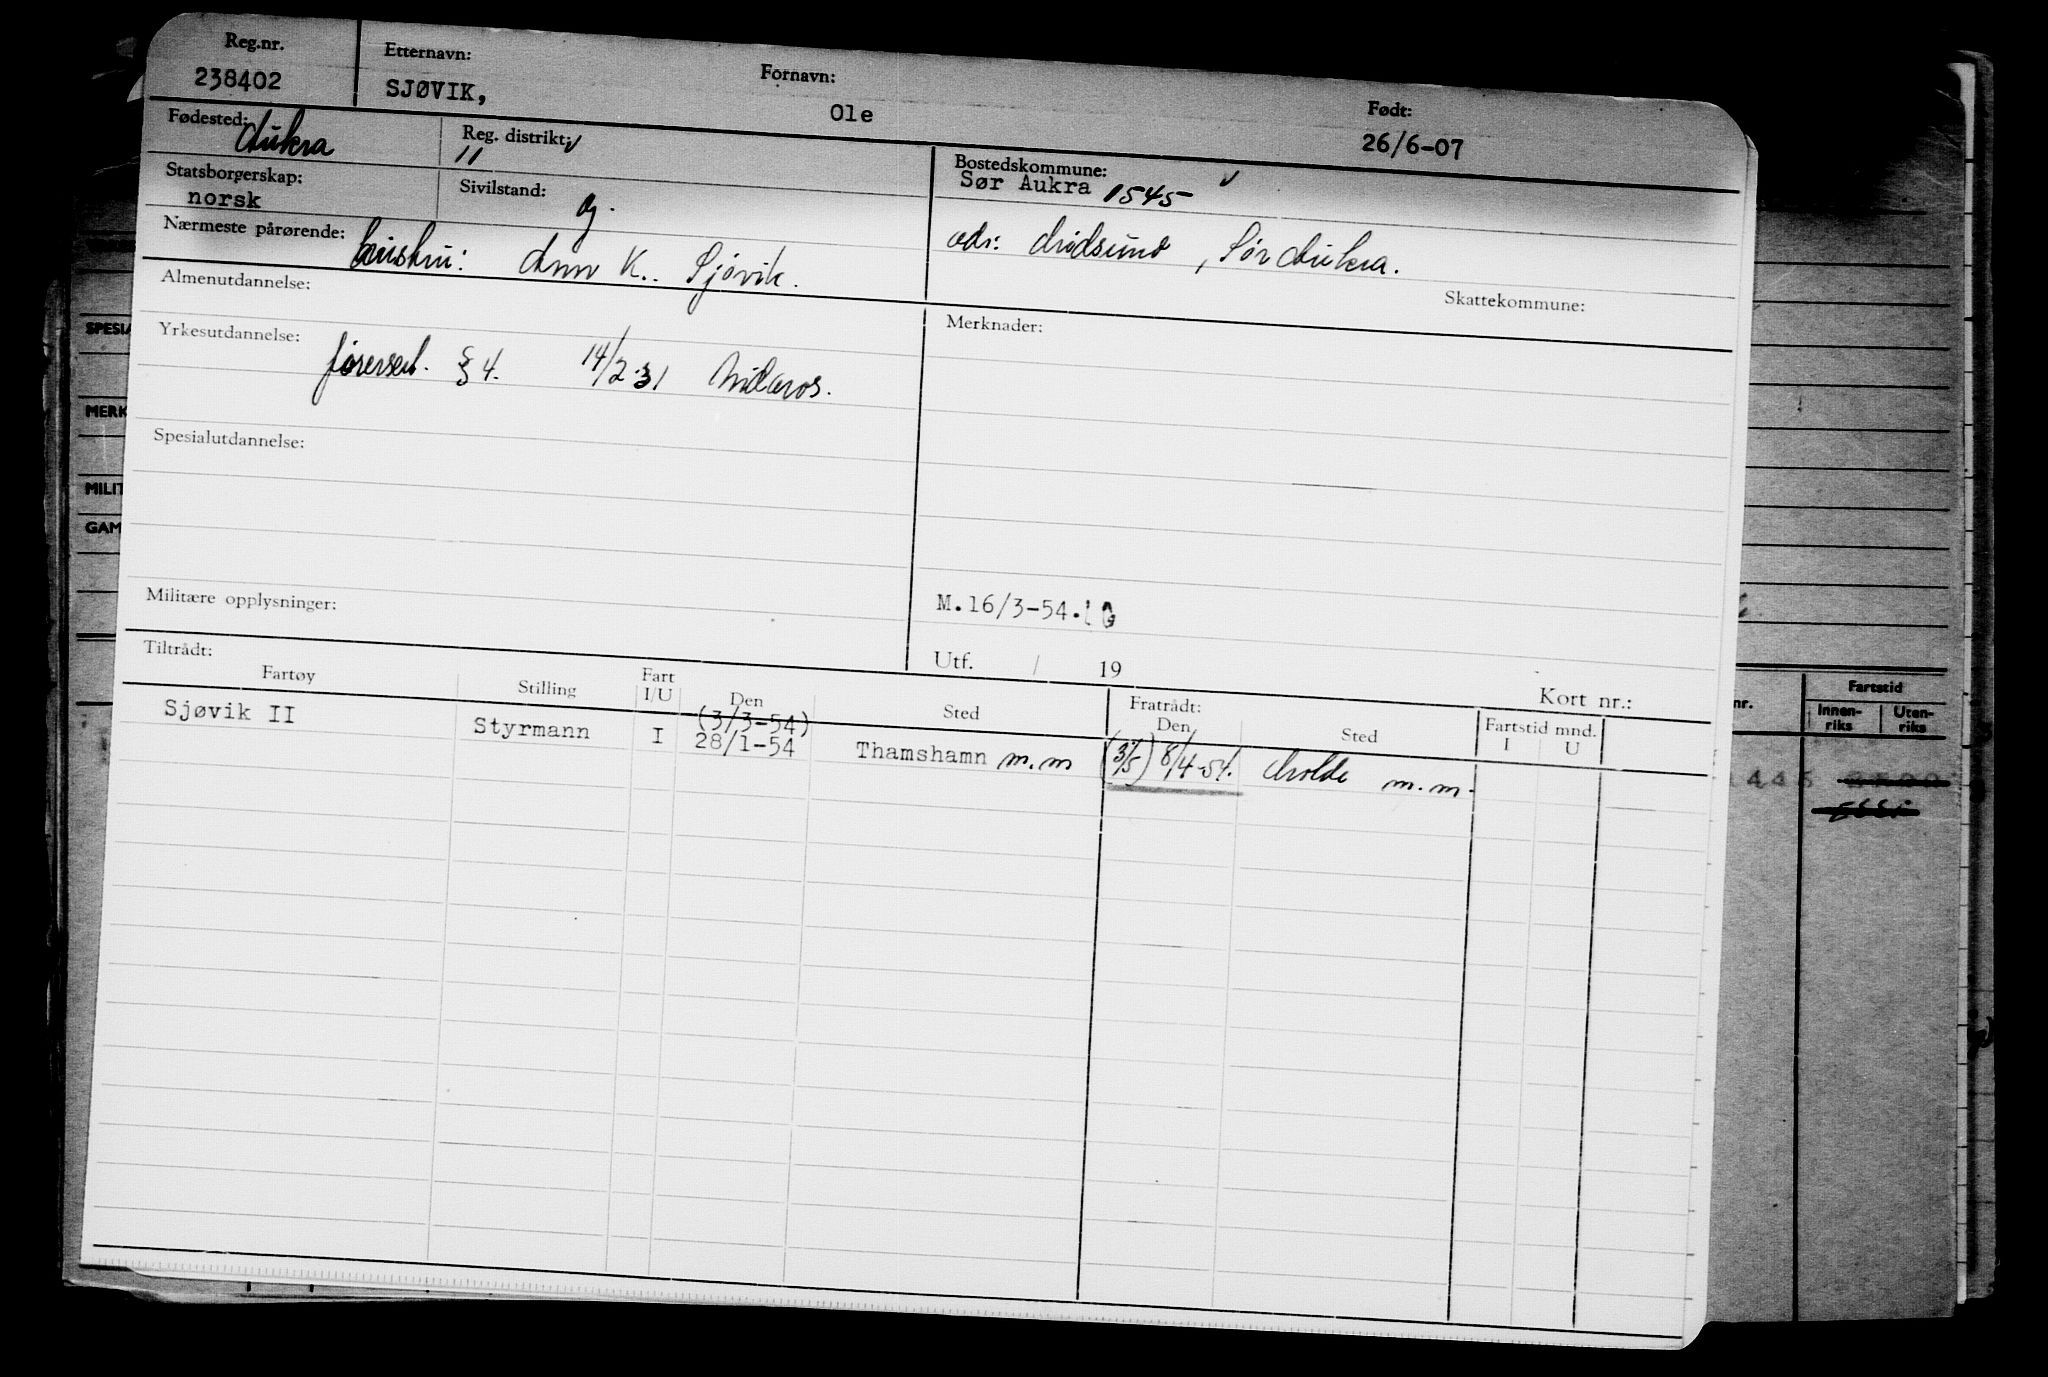 Reg.nr. Etternavn: Fornavn: Født:
238402 SJØVIK, Ole 26/6-07
Fødested: Aukra Reg. distrikt: 11 Bostedskommune:
Sør Aukra 1545
Statsborgerskap: Sivilstand:
norsk g.
adr: Midsund, Sør Aukra.
Nærmeste pårørende: hustru: Ann K. Sjøvik.
Skattekommune:
Almenutdannelse:
Merknader:
Yrkesutdannelse:
førersert. § 4. 14/2.31 Nidaros.
Spesialutdannelse:
Militære opplysninger:
M.16/3-54.
Utf. / 19
Kort nr.:
Tiltrådt: Fratrådt:
Fartøy Stilling Fart I/U Den Sted Den Sted Fartstid mnd. I U
Sjøvik II Styrmann I (3/3-54) 28/1-54 Thamshamn m.m (3/5) 8/4-54. Molde m.m.
SPESIA
MERK
MILIT
GAM
nr. Fartstid
Innen-riks Uten-riks